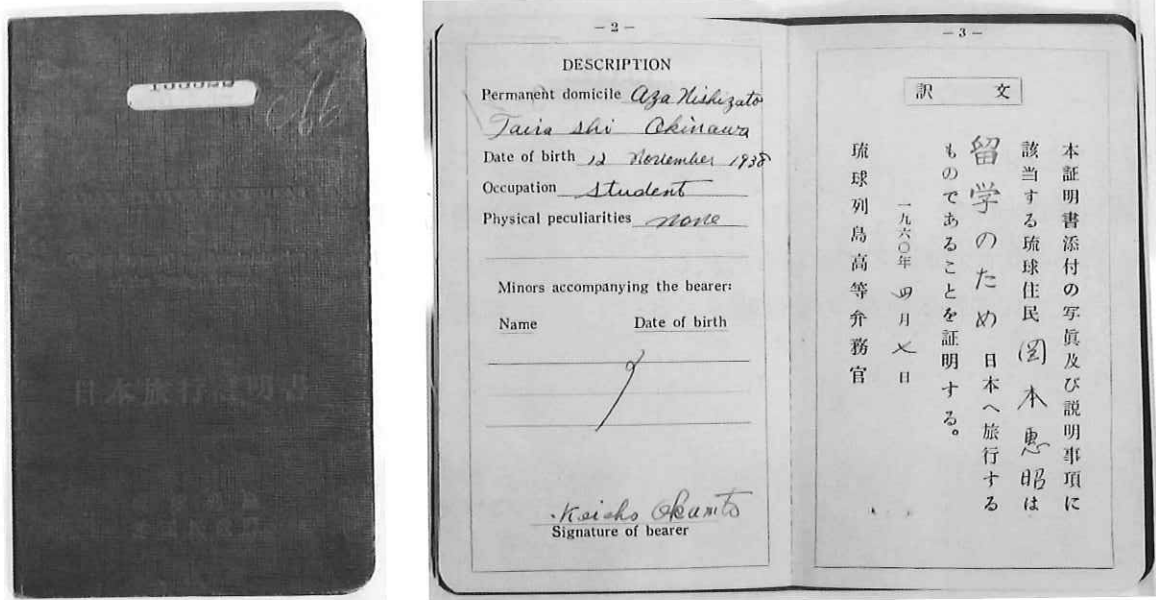 日本旅行證明書
— 2 —
DESCRIPTION
Permanent domicile Aza Nishizato
Taira shi Okinawa
Date of birth 12 November 1938
Occupation student
Physical peculiarities none
Minors accompanying the bearer:
Name Date of birth
Keisho Okamoto
Signature of bearer
— 3 —
訳文
本証明書添付の写眞及び説明事項に
該当する琉球住民岡本惠昭は
留学のため日本へ旅行する
ものであることを証明する。
一九六〇年四月七日
琉球列島高等弁務官